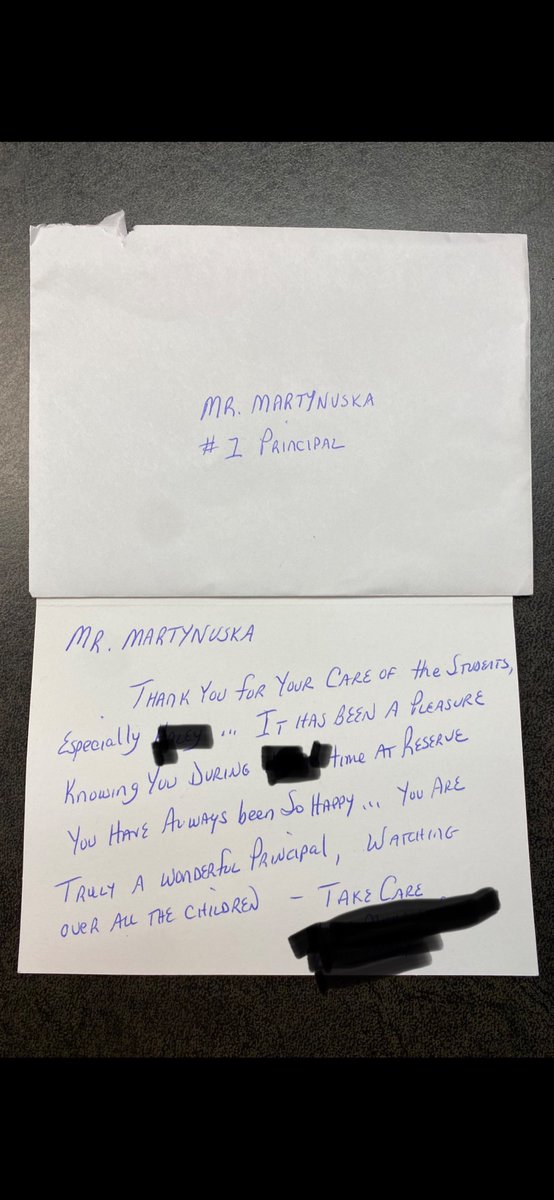 MR. MARTYNUSKA
# 1 PRINCIPAL
MR. MARTYNUSKA
THANK YOU for YOUR CARE OF the STUDENTS,
Especially ... IT HAS BEEN A PLEASURE
Knowing YOU DURING time AT RESERVE
YOU HAVE ALWAYS been So HAPPY... YOU ARE
TRULY A WONDERFUL PRINCIPAL, WATCHING
OVER ALL THE CHILDREN - TAKE CARE